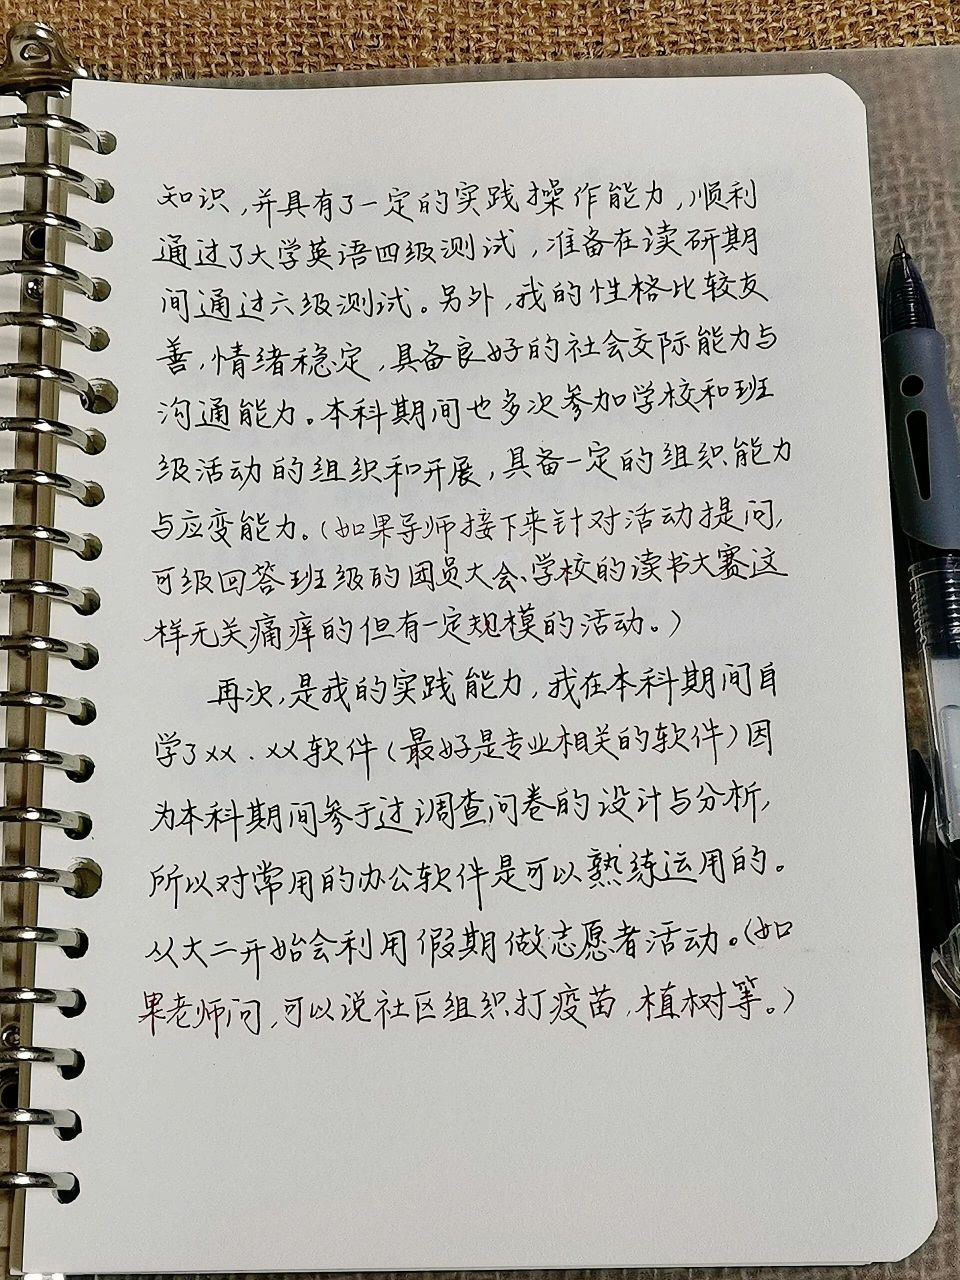 知识，并具有了一定的实践操作能力，顺利
通过了大学英语四级测试，准备在读研期
间通过六级测试。另外，我的性格比较友
善，情绪稳定，具备良好的社会交际能力与
沟通能力。本科期间也多次参加学校和班
级活动的组织和开展，具备一定的组织能力
与应变能力。（如果导师接下来针对活动提问，
可级回答班级的团员大会、学校的读书大赛这
样无关痛痒的但有一定规模的活动。）
再次，是我的实践能力，我在本科期间自
学了xx、xx软件（最好是专业相关的软件）因
为本科期间参于过调查问卷的设计与分析，
所以对常用的办公软件是可以熟练运用的。
从大二开始会利用假期做志愿者活动。（如
果老师问，可以说社区组织打疫苗，植树等。）